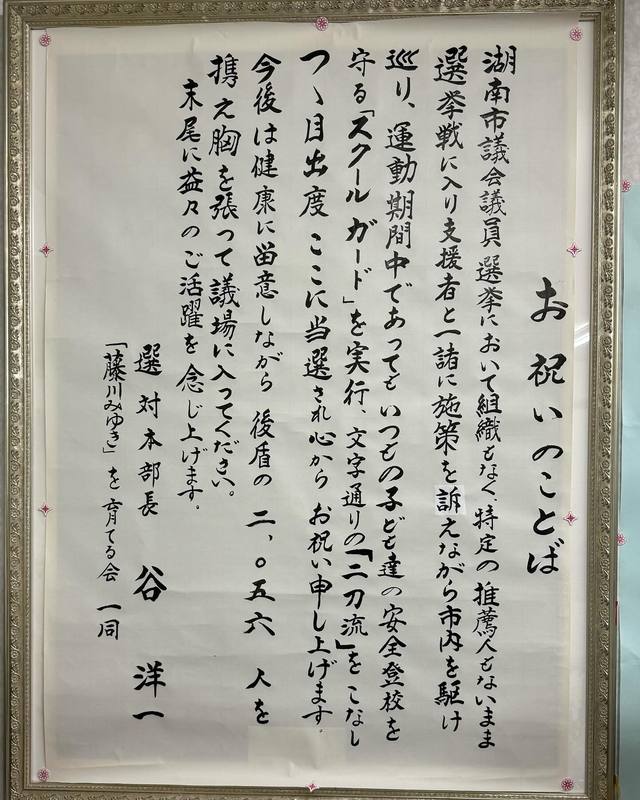 お祝いのことば
湖南市議会議員 選挙において組織もなく、特定の推薦人もないまま
選挙戦に入り支援者と一諸に施策を訴えながら市内を駆け
巡り、運動期間中であってもいつもの子ども達の安全登校を
守る「スクールガード」を実行、文字通りの「二刀流」をこなし
つゝ目出度 ここに当選され心から お祝い申し上げます。
今後は健康に留意しながら 後盾の 二、〇五六 人を
携え胸を張って議場に入ってください。
末尾に益々のご活躍を念じ上げます。
選対本部長 谷 洋一
「藤川みゆき」を育てる会 一同